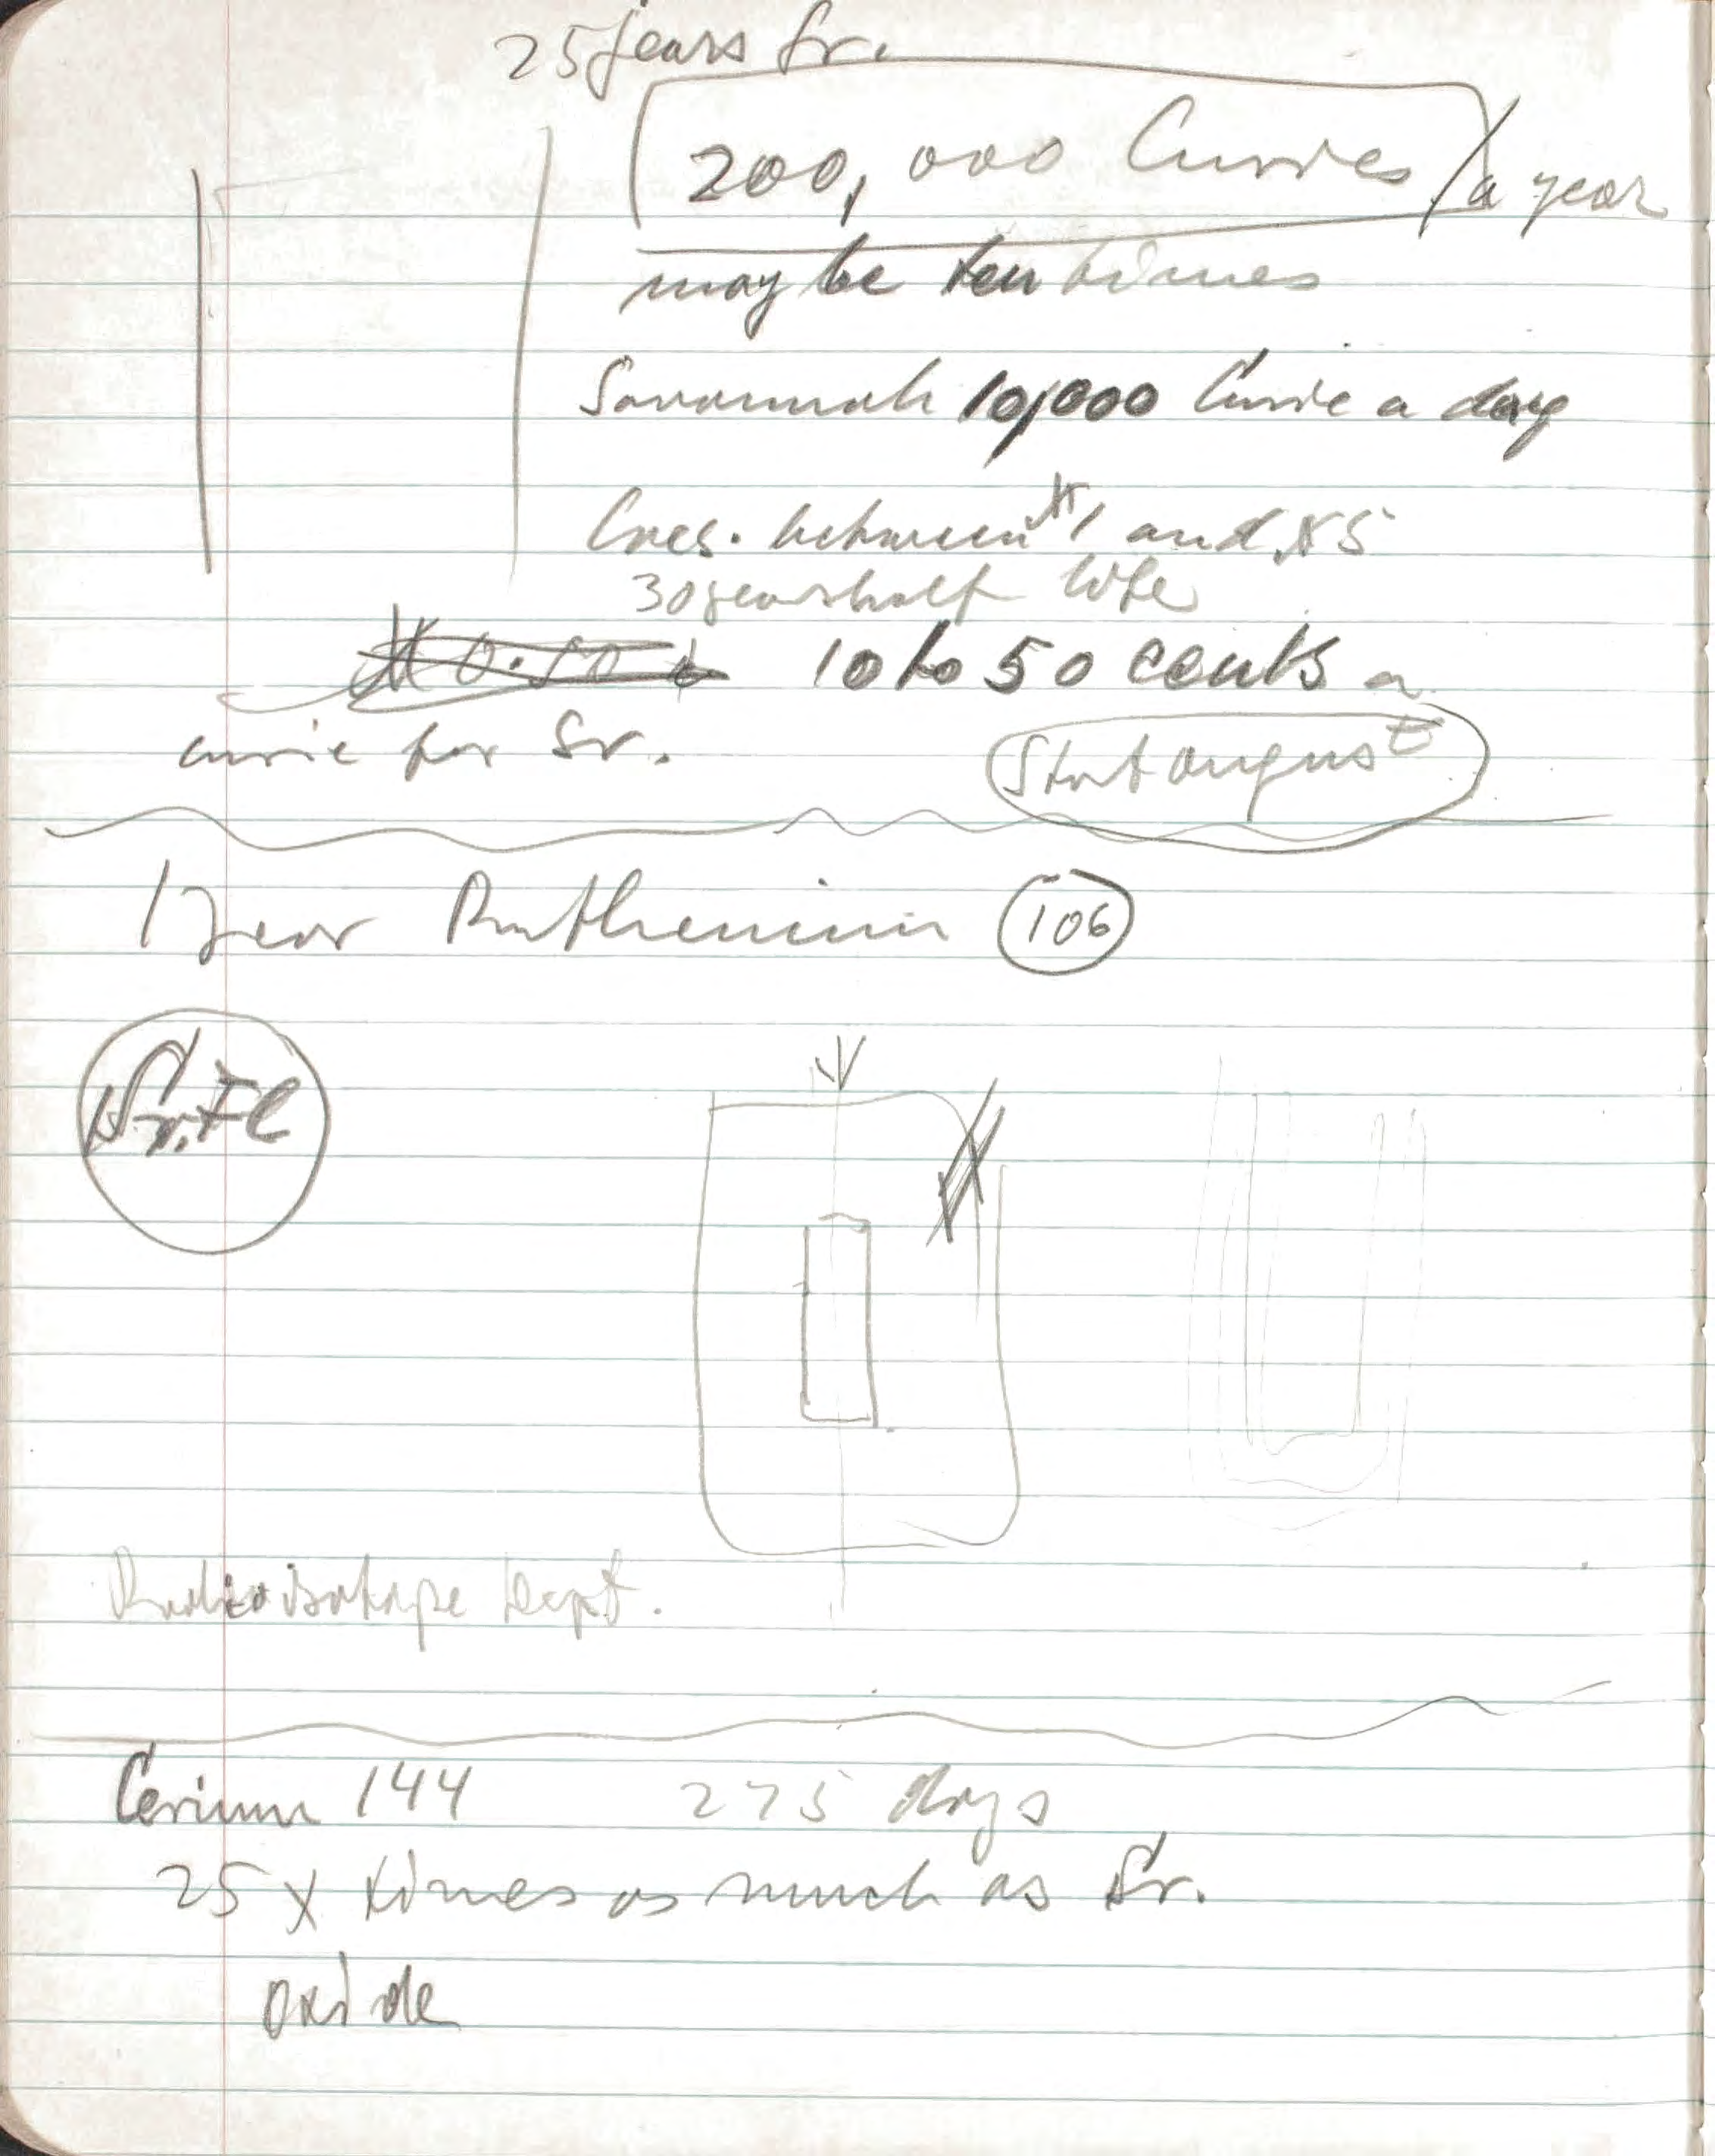 25 years Sr.
200,000 Curies / a year
may be ten times
Savannah 10,000 Curie a day
Caes. between $1 and $5
30 years half life
10 to 50 cents a
curie for Sr.
Start august
1 year Ruthenium 106
Radioisotope Dept.
Cerium 144 275 days
25 x times as much as Sr.
oxide